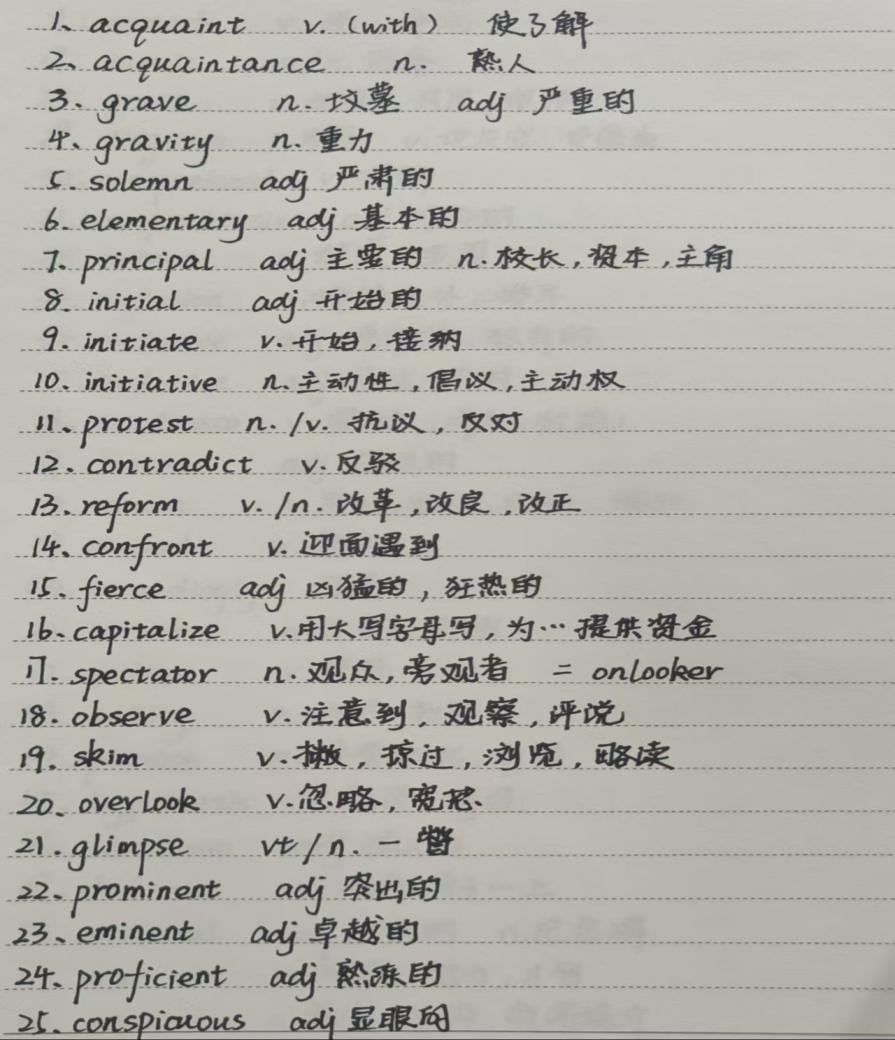 1、acquaint v.(with) 使了解
2、acquaintance n. 熟人
3. grave n. 坟墓 adj 严重的
4、gravity n. 重力
5. solemn adj 严肃的
6. elementary adj 基本的
7. principal adj 主要的 n.校长,资本,主角
8. initial adj 开始的
9. initiate v.开始,接纳
10. initiative n.主动性,倡议,主动权
11、protest n./v. 抗议,反对
12. contradict v.反驳
13. reform v./n.改革,改良,改正
14. confront v.迎面遇到
15. fierce adj 凶猛的,狂热的
16. capitalize v.用大写字母写,为…提供资金
17. spectator n.观众,旁观者 = onlooker
18. observe v.注意到,观察,评说
19. skim v.撇,掠过,浏览,略读
20、overlook v.忽略,宽恕
21. glimpse vt/n. 一瞥
22. prominent adj 突出的
23、eminent adj 卓越的
24. proficient adj 熟练的
25. conspicuous adj 显眼的